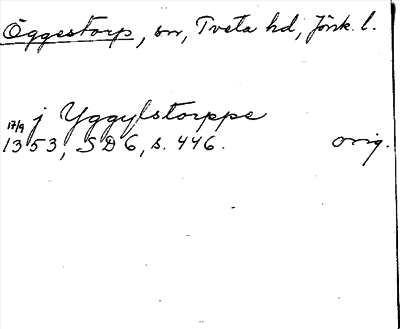 Öggestorp, sn, Tveta hd, Jönk. l.
j Yggylstorppe
17/9 1353, SD 6, s. 446. orig.